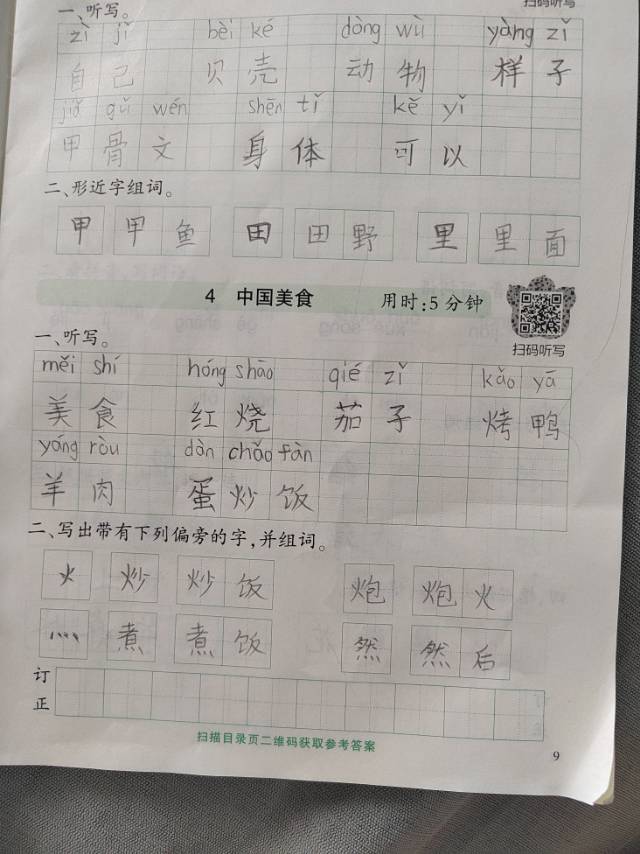 一、听写。 扫码听写
zì jǐ bèi ké dòng wù yàng zi
自己 贝壳 动物 样子
jiǎ gǔ wén shēn tǐ kě yǐ
甲骨文 身体 可以
二、形近字组词。
甲 甲鱼 田 田野 里 里面
4 中国美食 用时:5分钟
扫码听写
一、听写。
měi shí hóng shāo qié zǐ kǎo yā
美食 红烧 茄子 烤鸭
yáng ròu dàn chǎo fàn
羊肉 蛋炒饭
二、写出带有下列偏旁的字,并组词。
火 炒 炒饭 炮 炮火
灬 煮 煮饭 然 然后
订
正
扫描目录页二维码获取参考答案
9